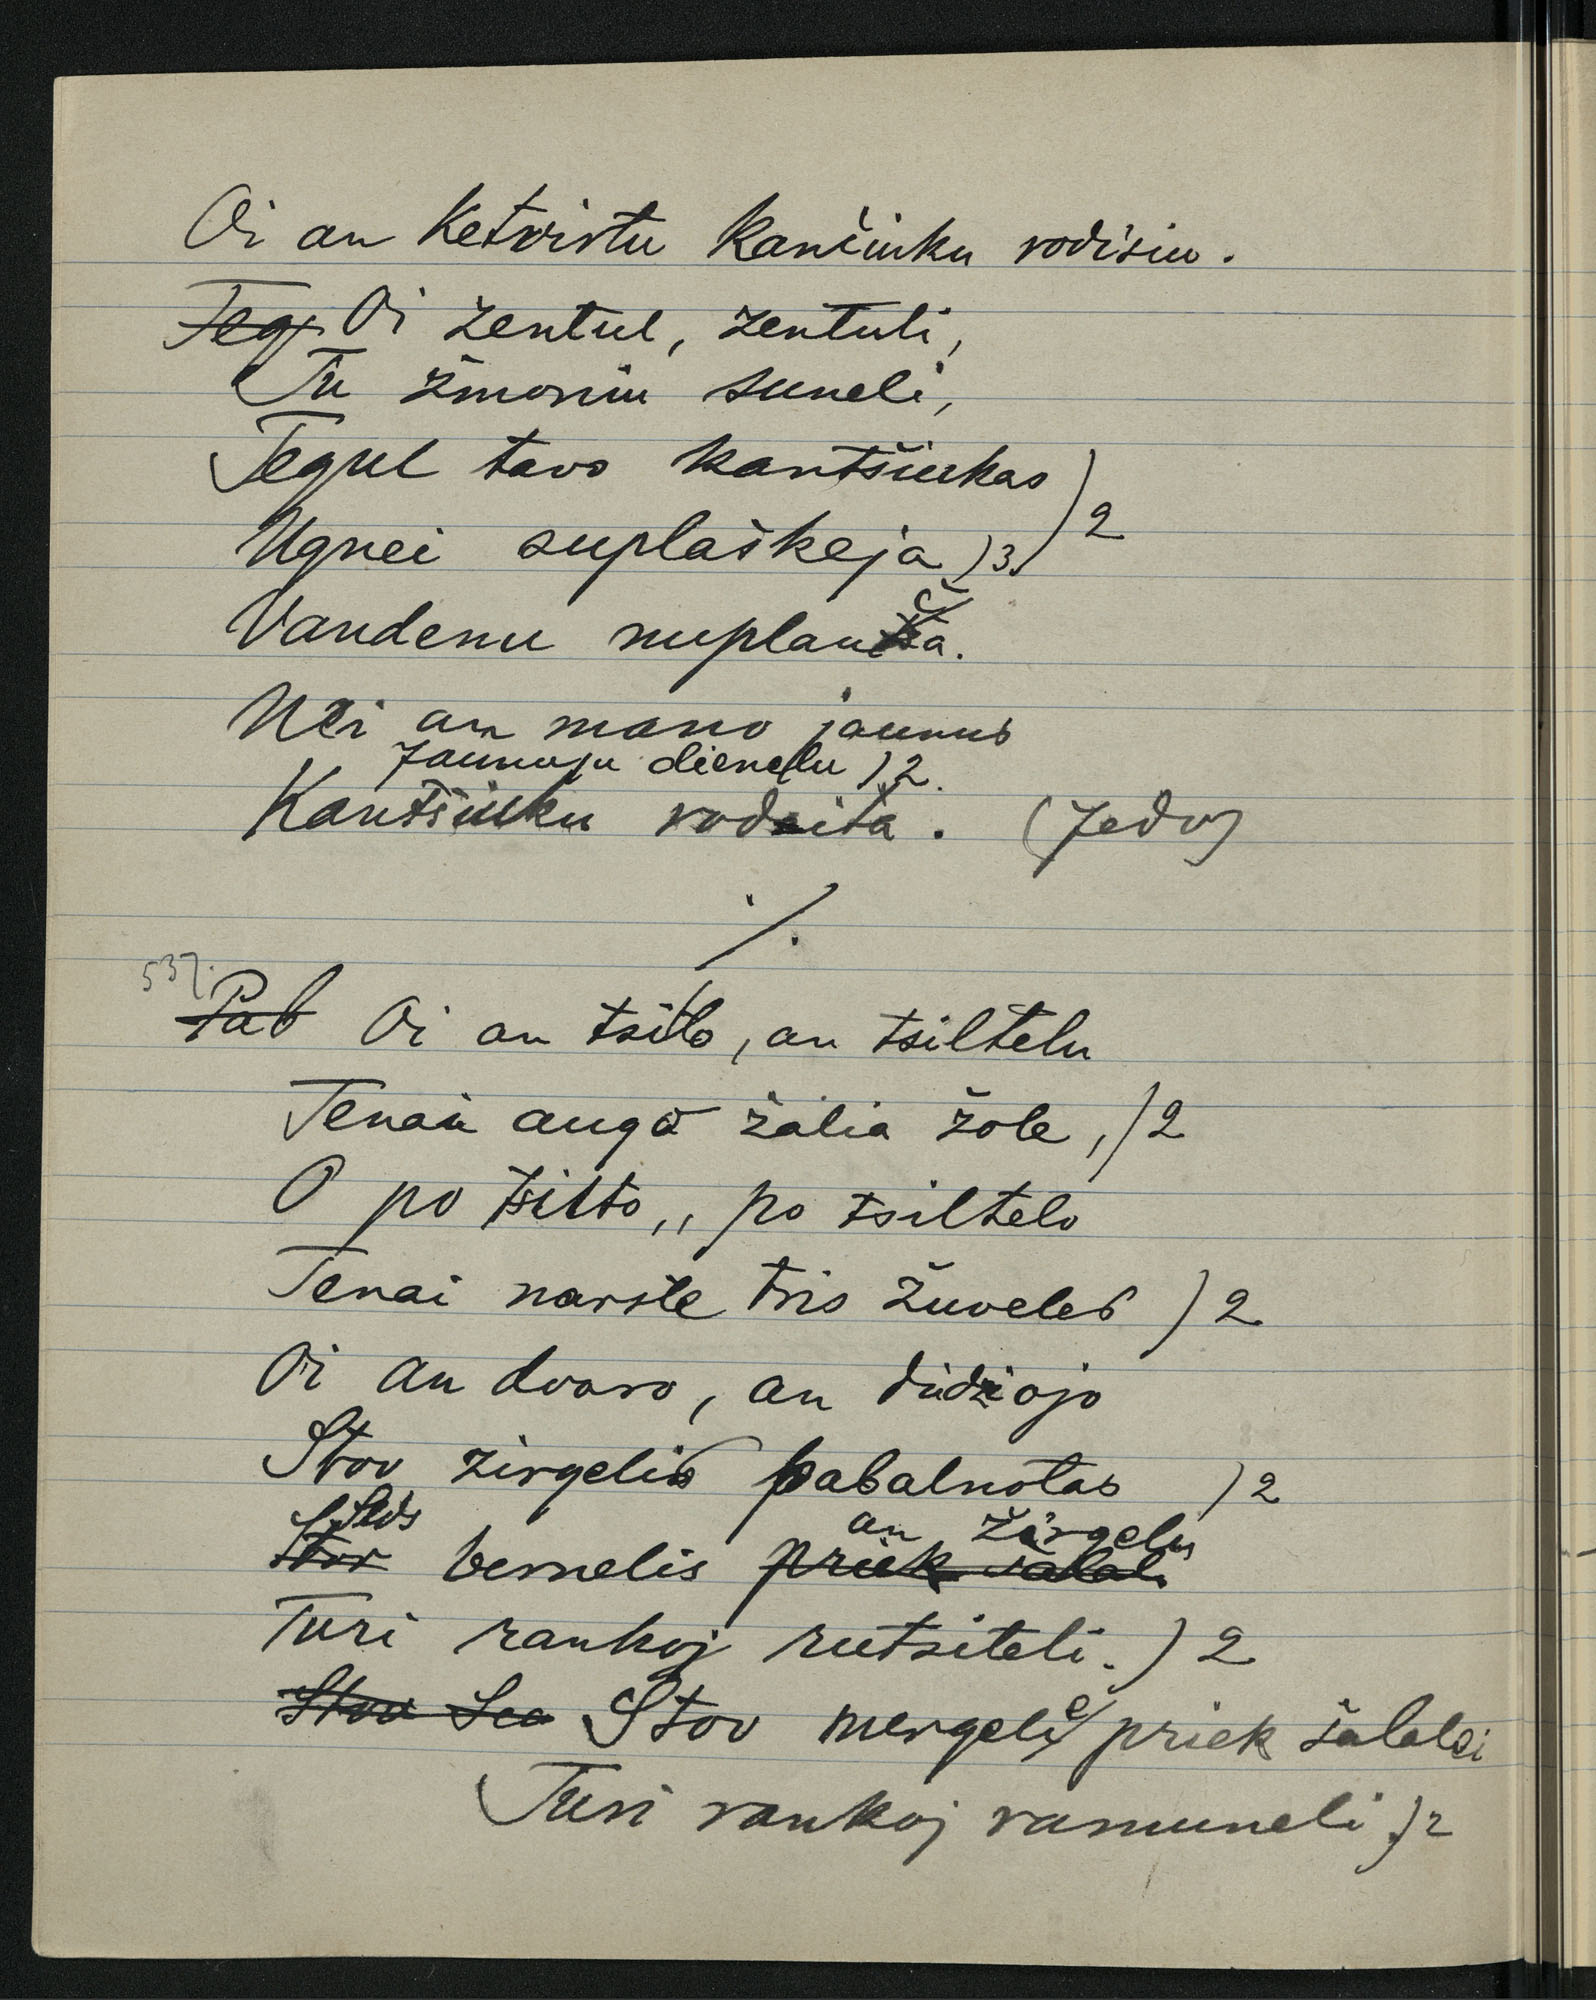 Oi an Ketvirtu Kančiuku rodisiu.
Teg Oi žentul, žentuli,
Tu žmoniu suneli,
Tegul tavo kantšiukas )2
Ugnei suplaškeja )3.
Vandenu nuplauča.
Nei an mano jaunus
Jaunuju dienelu )2.
Kantšiuku rodita. (Jedv)
./.
537.
Pab Oi an tsilto, an tsiltelu
Tenai auga žalia žole, )2
O po tsilto,, po tsiltelo
Tenai narste tris žuveles )2
Oi an dvaro, an didžiojo
Stov žirgelis pabalnotas )2
Sėds an žirgelu
Stov bernelis priek šalali
Turi rankoj rutsiteli. )2
Stov Sea Stov mergele priek šalalei
Turi rankoj ramuneli. )2